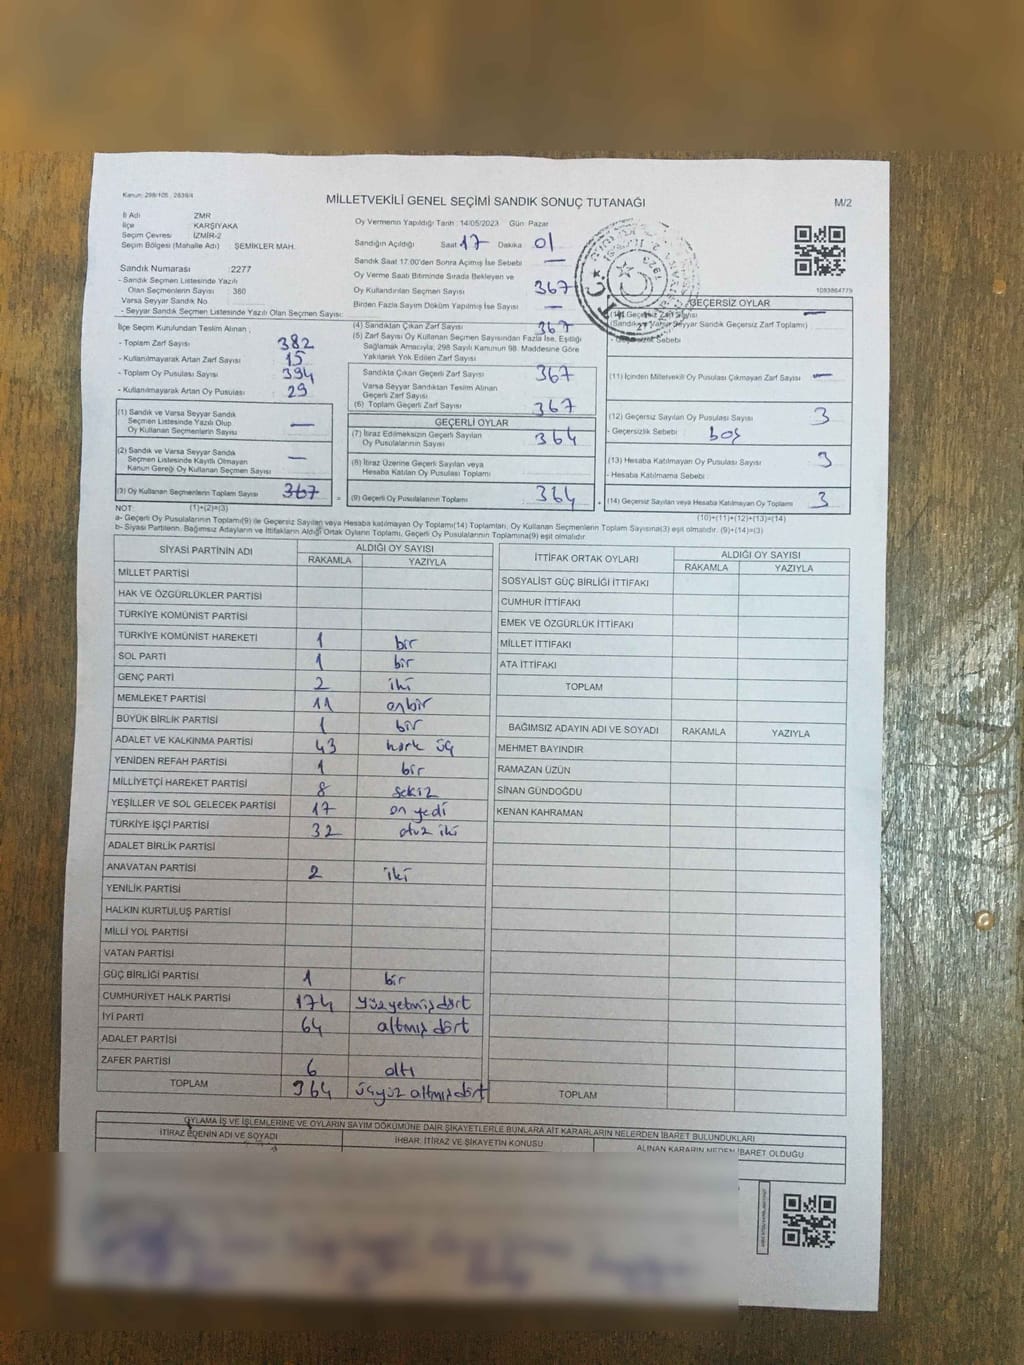 Kanun: 298/105 , 2839/4
MİLLETVEKİLİ GENEL SEÇİMİ SANDIK SONUÇ TUTANAĞI
M/2
İl Adı ZMR
İlçe KARŞIYAKA
Seçim Çevresi İZMİR-2
Seçim Bölgesi (Mahalle Adı) : ŞEMİKLER MAH.
Sandık Numarası :2277
- Sandık Seçmen Listesinde Yazılı
Olan Seçmenlerin Sayısı : 380
Varsa Seyyar Sandık No
- Seyyar Sandık Seçmen Listesinde Yazılı Olan Seçmen Sayısı:
Oy Vermenin Yapıldığı Tarih : 14/05/2023 Gün: Pazar
Sandığın Açıldığı Saat 17 Dakika 01
Sandık Saat 17.00'den Sonra Açılmış İse Sebebi —
Oy Verme Saati Bitiminde Sırada Bekleyen ve
Oy Kullandırılan Seçmen Sayısı 367
Birden Fazla Sayım Döküm Yapılmış İse Sayısı —
1093864779
İlçe Seçim Kurulundan Teslim Alınan ,
- Toplam Zarf Sayısı 382
- Kullanılmayarak Artan Zarf Sayısı 15
- Toplam Oy Pusulası Sayısı 394
- Kullanılmayarak Artan Oy Pusulası 29
(1) Sandık ve Varsa Seyyar Sandık
Seçmen Listesinde Yazılı Olup
Oy Kullanan Seçmenlerin Sayısı —
(2) Sandık ve Varsa Seyyar Sandık
Seçmen Listesinde Kayıtlı Olmayan
Kanun Gereği Oy Kullanan Seçmen Sayısı —
(3) Oy Kullanan Seçmenlerin Toplam Sayısı 367 =
(4) Sandıktan Çıkan Zarf Sayısı 367
(5) Zarf Sayısı Oy Kullanan Seçmen Sayısından Fazla İse, Eşitliği
Sağlamak Amacıyla; 298 Sayılı Kanunun 98. Maddesine Göre
Yakılarak Yok Edilen Zarf Sayısı
Sandıkta Çıkan Geçerli Zarf Sayısı 367
Varsa Seyyar Sandıktan Teslim Alınan
Geçerli Zarf Sayısı
(6) Toplam Geçerli Zarf Sayısı 367
GEÇERLİ OYLAR
(7) İtiraz Edilmeksizin Geçerli Sayılan
Oy Pusulalarının Sayısı 364
(8) İtiraz Üzerine Geçerli Sayılan veya
Hesaba Katılan Oy Pusulası Toplamı
(9) Geçerli Oy Pusulalarının Toplamı 364 +
GEÇERSİZ OYLAR
(10) Geçersiz Zarf Sayısı —
(Sandık ve Varsa Seyyar Sandık Geçersiz Zarf Toplamı)
- Geçersizlik Sebebi
(11) İçinden Milletvekili Oy Pusulası Çıkmayan Zarf Sayısı —
(12) Geçersiz Sayılan Oy Pusulası Sayısı 3
- Geçersizlik Sebebi : boş
(13) Hesaba Katılmayan Oy Pusulası Sayısı 3
- Hesaba Katılmama Sebebi :
(14) Geçersiz Sayılan veya Hesaba Katılmayan Oy Toplamı 3
NOT: (1)+(2)=(3)
(10)+(11)+(12)+(13)=(14)
a- Geçerli Oy Pusulalarının Toplamı(9) ile Geçersiz Sayılan veya Hesaba katılmayan Oy Toplamı(14) Toplamları, Oy Kullanan Seçmenlerin Toplam Sayısına(3) eşit olmalıdır. (9)+(14)=(3)
b- Siyasi Partilerin, Bağımsız Adayların ve İttifakların Aldığı Ortak Oyların Toplamı, Geçerli Oy Pusulalarının Toplamına(9) eşit olmalıdır
SİYASİ PARTİNİN ADI ALDIĞI OY SAYISI
RAKAMLA YAZIYLA
MİLLET PARTİSİ
HAK VE ÖZGÜRLÜKLER PARTİSİ
TÜRKİYE KOMÜNİST PARTİSİ
TÜRKİYE KOMÜNİST HAREKETİ 1 bir
SOL PARTİ 1 bir
GENÇ PARTİ 2 iki
MEMLEKET PARTİSİ 11 onbir
BÜYÜK BİRLİK PARTİSİ 1 bir
ADALET VE KALKINMA PARTİSİ 43 kırk üç
YENİDEN REFAH PARTİSİ 1 bir
MİLLİYETÇİ HAREKET PARTİSİ 8 sekiz
YEŞİLLER VE SOL GELECEK PARTİSİ 17 on yedi
TÜRKİYE İŞÇİ PARTİSİ 32 otuz iki
ADALET BİRLİK PARTİSİ
ANAVATAN PARTİSİ 2 iki
YENİLİK PARTİSİ
HALKIN KURTULUŞ PARTİSİ
MİLLİ YOL PARTİSİ
VATAN PARTİSİ
GÜÇ BİRLİĞİ PARTİSİ 1 bir
CUMHURİYET HALK PARTİSİ 174 yüzyetmişdört
İYİ PARTİ 64 altmış dört
ADALET PARTİSİ
ZAFER PARTİSİ 6 altı
TOPLAM 364 üçyüz altmışdört
İTTİFAK ORTAK OYLARI ALDIĞI OY SAYISI
RAKAMLA YAZIYLA
SOSYALİST GÜÇ BİRLİĞİ İTTİFAKI
CUMHUR İTTİFAKI
EMEK VE ÖZGÜRLÜK İTTİFAKI
MİLLET İTTİFAKI
ATA İTTİFAKI
TOPLAM
BAĞIMSIZ ADAYIN ADI VE SOYADI RAKAMLA YAZIYLA
MEHMET BAYINDIR
RAMAZAN ÜZÜN
SİNAN GÜNDOĞDU
KENAN KAHRAMAN
TOPLAM
OYLAMA İŞ VE İŞLEMLERİNE VE OYLARIN SAYIM DÖKÜMÜNE DAİR ŞİKAYETLERLE BUNLARA AİT KARARLARIN NELERDEN İBARET BULUNDUKLARI
İTİRAZ EDENİN ADI VE SOYADI İHBAR, İTİRAZ VE ŞİKAYETİN KONUSU ALINAN KARARIN NEDEN İBARET OLDUĞU